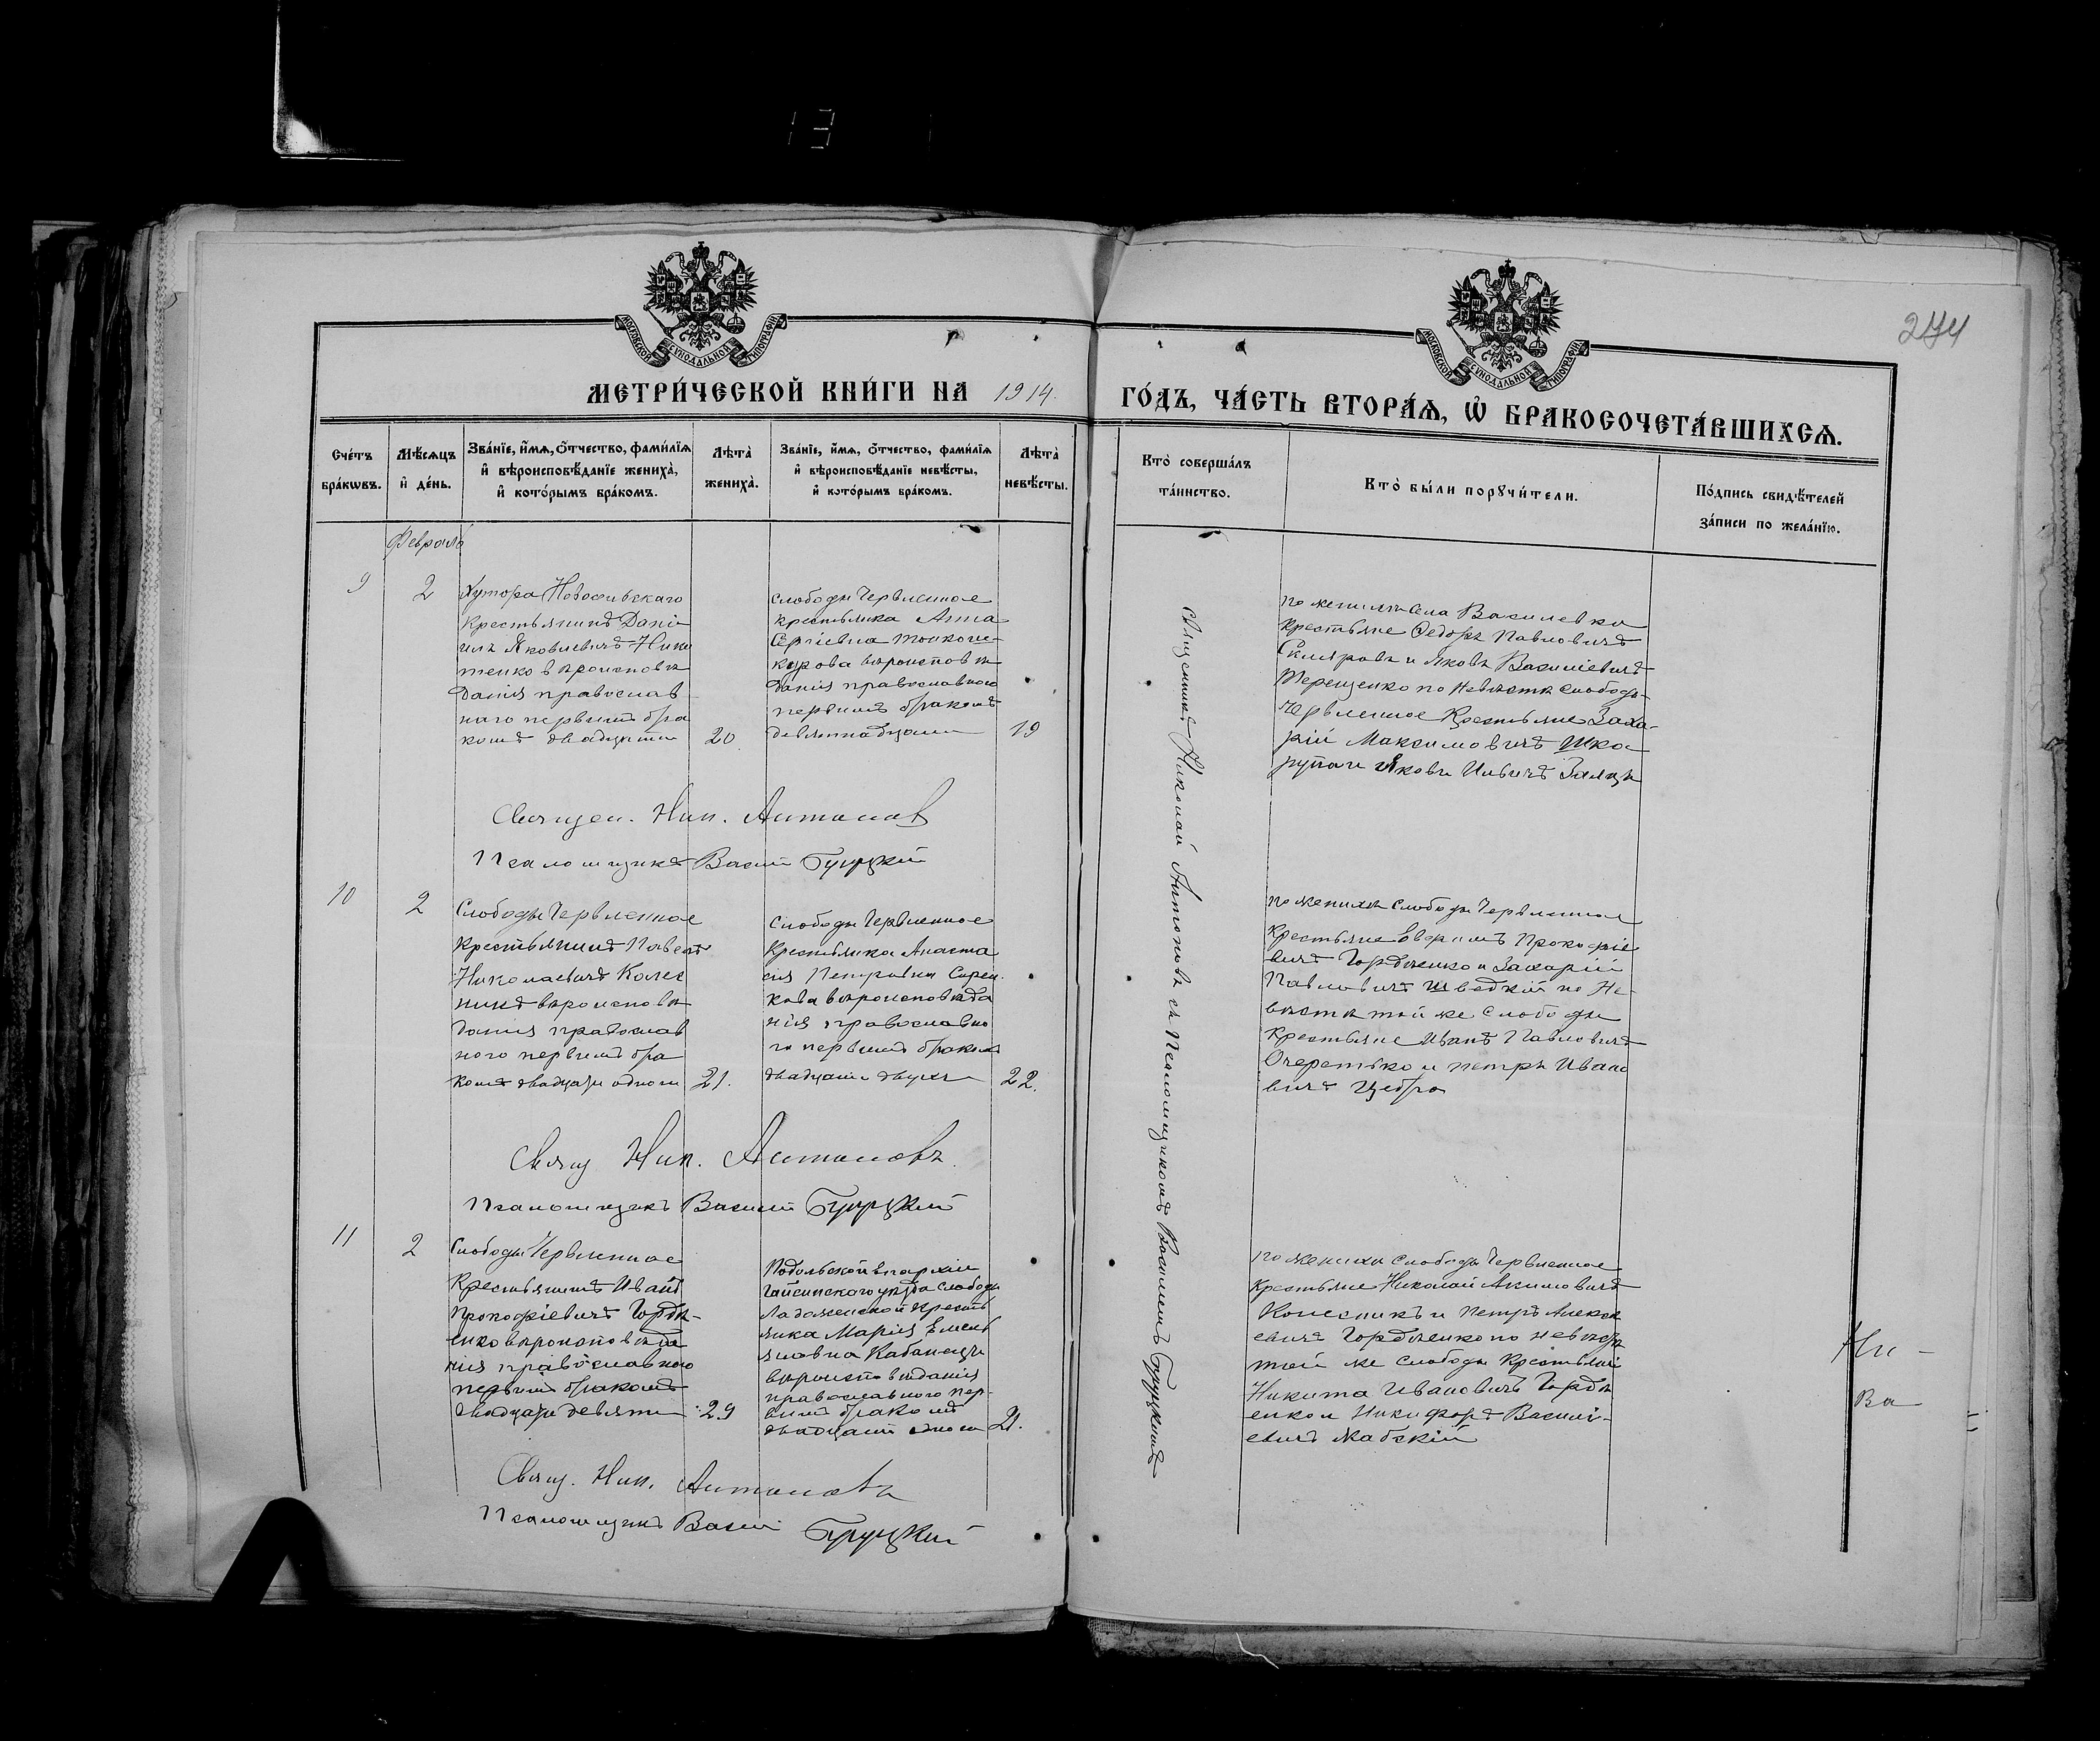 13
274
МОСКОВСКОЙ СѴНОДАЛЬНОЙ ТИПОГРАФІИ
МОСКОВСКОЙ СѴНОДАЛЬНОЙ ТИПОГРАФІИ
МЕТРИ́ЧЕСКОЙ КНИ́ГИ НА 1914. ГО́ДЪ, ЧА́СТЬ ВТОРА́Ѧ, Ѡ҆ БРАКОСОЧЕТА́ВШИХСѦ.
Сче́тъ бра́кѡвъ.
Мѣ́сѧцъ и҆ де́нь.
Зва́нїе, и҆́мѧ, ѻ҆́тчество, фами́лїѧ
и҆ вѣроисповѣ́данїе жениха̀,
и҆ кото́рымъ бра́комъ.
Лѣта̀ жениха̀.
Зва́нїе, и҆́мѧ, ѻ҆́тчество, фами́лїѧ
и҆ вѣроисповѣ́данїе невѣ́сты,
и҆ кото́рымъ бра́комъ.
Лѣта̀ невѣ́сты.
Кто̀ соверша́лъ
та́инство.
Кто̀ бы́ли порꙋчи́тели.
По́дпись свидѣ́телей
за́писи по жела́нїю.
Февраль
9
2
Хутора
Крестьянинъ Дани
илъ Яковлевичъ Ники
тенко вѣроисповѣ
данія православ
наго первымъ бра
комъ двадцати
20
слободы Червленное
крестьянка Анна
Сергіевна
вѣроисповѣ
данія православнаго
первымъ бракомъ
девятнадцати
19
по женихѣ села Василевка
крестьяне Федоръ Павловичъ
и Яковъ Василіевичъ
Терещенко по невѣстѣ слободы
Червленное Крестьяне Заха-
рій Максимовичъ Шка
рупа и Яковъ Ильичъ
Священ. Ник. Антонов
Псаломщикъ Васил Бруцкій
Священникъ Николай Антоновъ съ Псаломщикомъ Василіемъ Бруцкимъ
10
2
Слободы Червленное
Крестьянинъ Павелъ
Николаевичъ Колес
никъ вѣроисповѣ
данія православ
ного первымъ бра
комъ двадцати одного
21.
Слободы Червленное
Крестьянка Анаста
сія Петровна
вѣроисповѣда
нія православно
го первымъ бракомъ
двадцати двухъ
22.
по женихѣ слободы Червленное
Крестьяне Прокофіе
вичъ Гордѣенко и Захарій
Павловичъ Шведкій по Не-
вѣстѣ той же Слободы
Крестьяне Иванъ Павловичъ
Очеретько и Петръ Ивано
вичъ Цебро
Свящ Ник. Антоновъ.
Псаломщикъ Василій Бруцкій
11
2
Слободы Червленное
Крестьянинъ Иванъ
Прокофіевичъ Гордѣ-
енко вѣроисповѣда
нія православного
первымъ бракомъ
двадцати девяти
29
Подольской епархіи
Гайсинскаго уѣзда слободы
Ладыженской Кресть
янка Марія Емель
яновна
вѣроисповѣданія
православного пер-
вымъ бракомъ
двадцати одного
21.
по женихѣ слободы Червленное
Крестьяне Николай Акимовичъ
Колесникъ и Петръ Алексѣ
евичъ Гордѣенко по невѣстѣ
той же слободы Крестьяне
Никита Ивановичъ Гордѣ
енко и Никифоръ Василі-
евичъ
Свящ. Ник. Антоновъ
Псаломщикъ Васил Бруцкій
Ни-
Ва